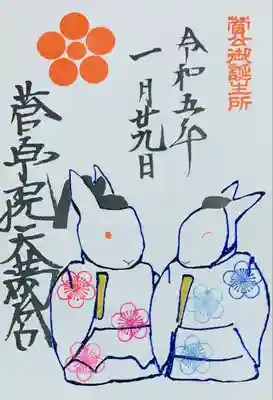 菅公御誕生所
令和五年
一月廿九日
菅原院天満宮